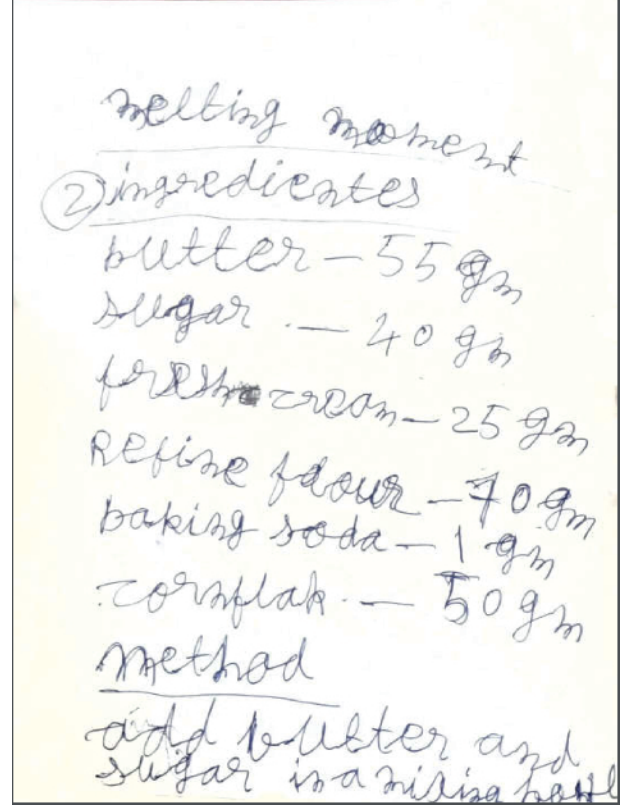 melting moment
② ingredientes
butter – 55 gm
sugar . – 40 gm
fresh cream – 25 gm
Refine flour – 70 gm
baking soda – 1 gm
cornflak. – 50 gm
method
add butter and
sugar in a mixing bowl